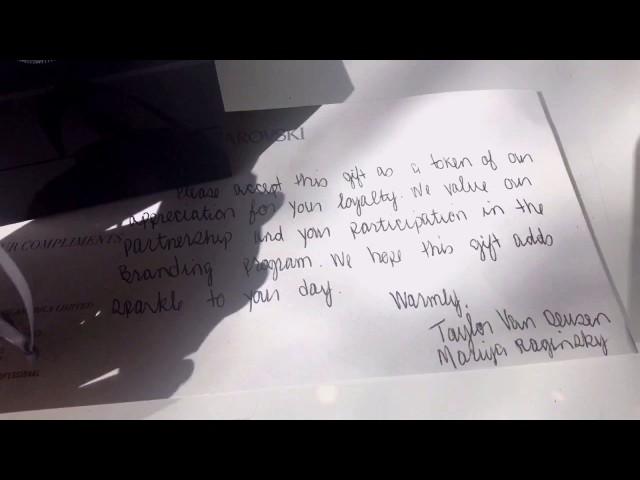 AROVSKI
Please accept this gift as a token of our
appreciation for your loyalty. We value our
partnership and your participation in the
Branding program. We hope this gift adds
sparkle to your day.
Warmly,
Taylor Van Deusen
Mariya Raginsky
UR COMPLIMENTS
LIMITED
OFESSIONAL